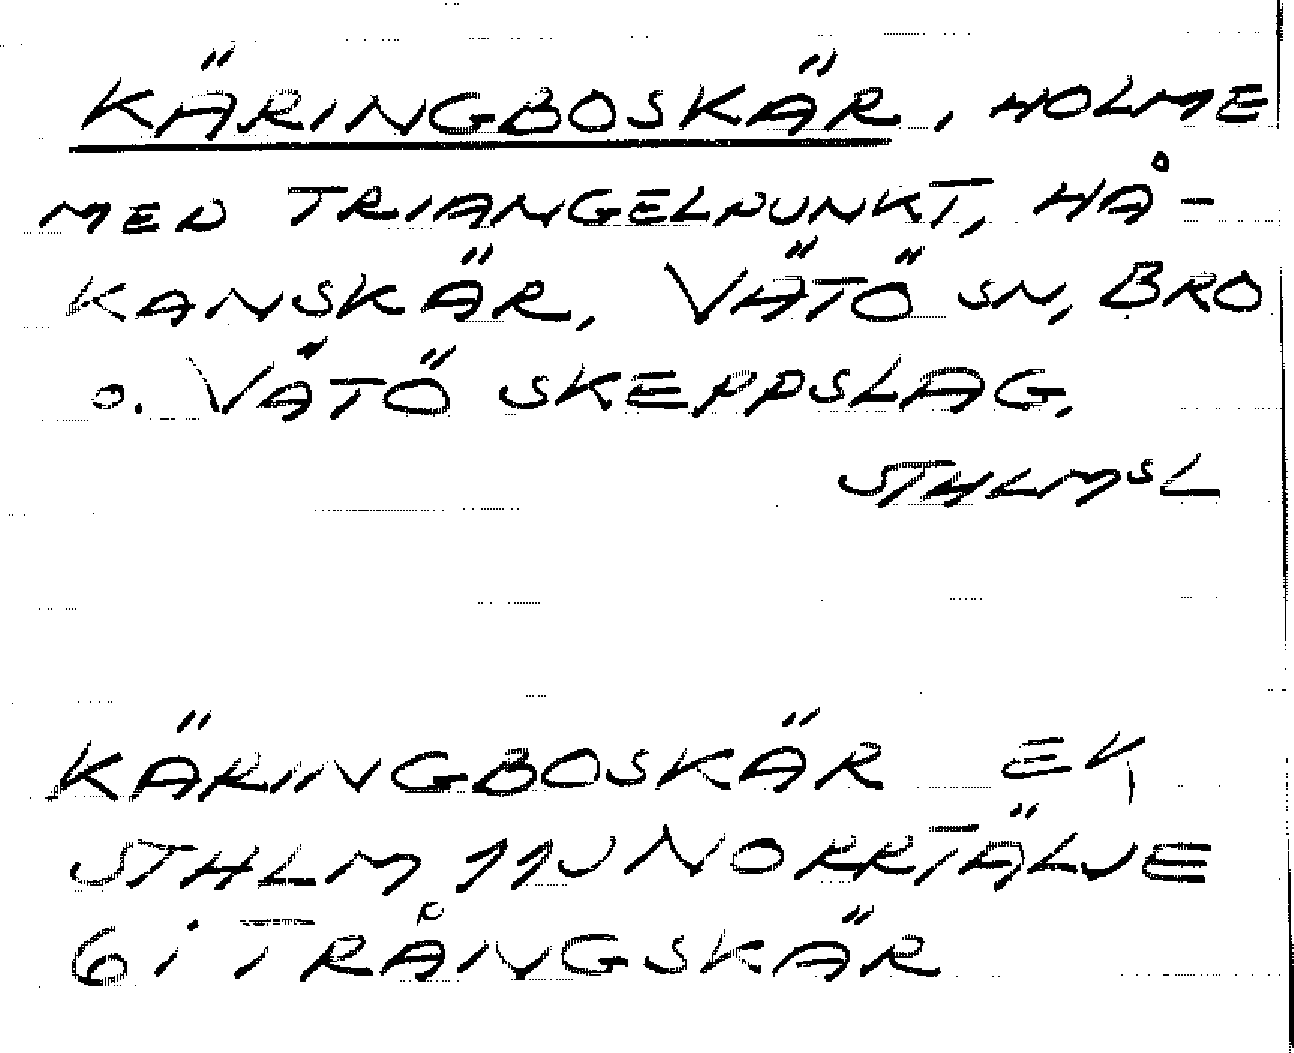 KÄRINGBOSKÄR, HOLME
MED TRIANGELPUNKT, HÅ-
KANSKÄR, VÄTÖ SN, BRO
O. VÄTÖ SKEPPSLAG,
STHLMSL
KÄRINGBOSKÄR EK,
STHLM 11J NORRTÄLJE
6i TRÅNGSKÄR